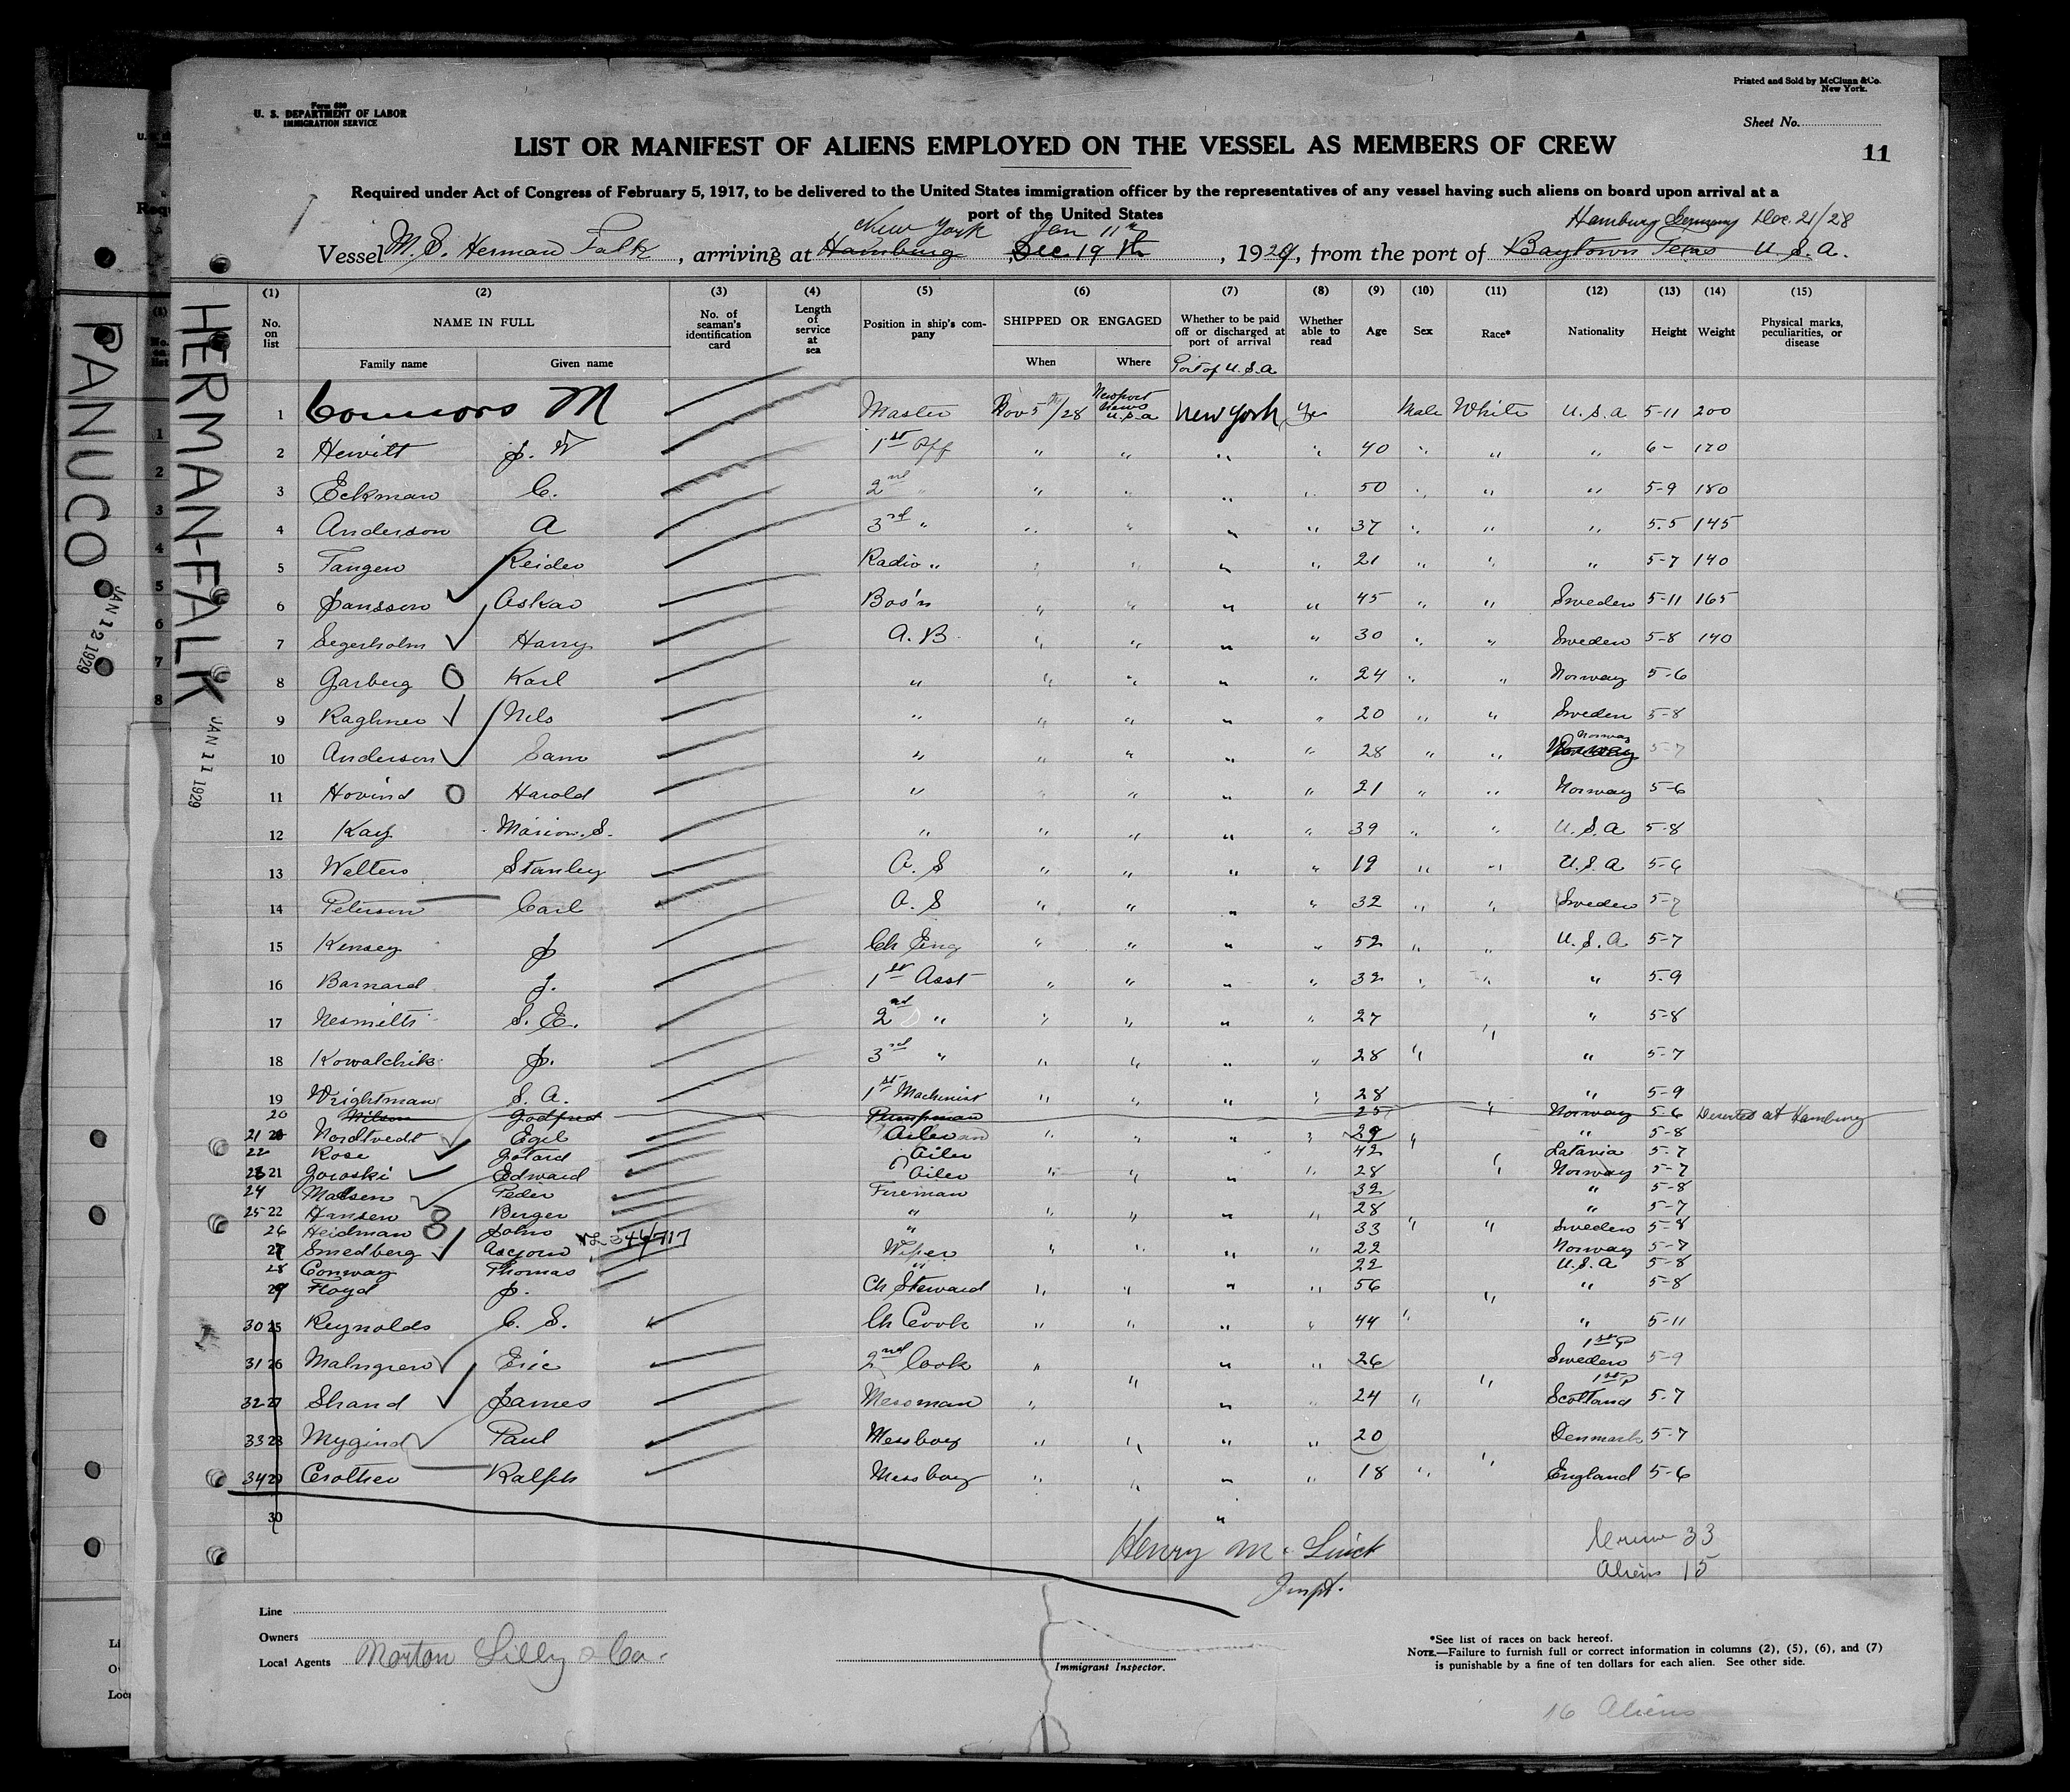 Printed and Sold by McClunn & Co.
New York.
Form 680
U. S. DEPARTMENT OF LABOR
IMMIGRATION SERVICE
Sheet No.
LIST OR MANIFEST OF ALIENS EMPLOYED ON THE VESSEL AS MEMBERS OF CREW
11
Required under Act of Congress of February 5, 1917, to be delivered to the United States immigration officer by the representatives of any vessel having such aliens on board upon arrival at a
port of the United States
New York Jan 11th Hamburg Germany Dec. 21/28
Vessel M. S. Herman Falk, arriving at Hamburg Dec. 19th, 1929, from the port of Baytown Texas U. S. A.
HERMAN-FALK JAN 11 1929
PANUCO JAN 12 1929
(1) (2) (3) (4) (5) (6) (7) (8) (9) (10) (11) (12) (13) (14) (15)
No. on list NAME IN FULL No. of seaman's identification card Length of service at sea Position in ship's company SHIPPED OR ENGAGED Whether to be paid off or discharged at port of arrival Whether able to read Age Sex Race* Nationality Height Weight Physical marks, peculiarities, or disease
Family name Given name When Where Port of U.S.A
1 Connors M Master Nov 5th/28 Newport News U.S.A New York Yes Male White U.S.A 5-11 200
2 Hewitt J. W 1st Off " " " " 40 " " " 6- 170
3 Eckman C. 2nd " " " " " 50 " " " 5-9 180
4 Anderson A 3rd " " " " " 37 " " " 5.5 145
5 Tangen Reider Radio " " " " " 21 " " " 5-7 140
6 Jansson Oskar Bos'n " " " " 45 " " Sweden 5-11 165
7 Segerholm Harry A. B. " " " " 30 " " Sweden 5-8 140
8 Garberg Karl " " " " " 24 " " Norway 5-6
9 Raghner Nels " " " " " 20 " " Sweden 5-8
10 Anderson Sam " " " " " 28 " " Norway 5-7
11 Hovind Harold " " " " " 21 " " Norway 5-6
12 Kay Marion. S. " " " " " 39 " " U.S.A 5-8
13 Walters Stanley O. S " " " " 19 " " U.S.A 5-6
14 Peterson Carl O. S " " " " 32 " " Sweden 5-7
15 Kensey J Ch Eng " " " " 52 " " U.S.A 5-7
16 Barnard J. 1st Asst " " " " 32 " " " 5.9
17 Nesmith S. E. 2nd " " " " " 27 " " 5-8
18 Kowalchik J. 3rd " " " " " 28 " " 5-7
19 Wrightman S. A. 1st Machinist " " " " 28 " 5-9
20 Nilson Godfred Pumpman 25 " Norway 5-6 Deserted at Hamburg
21 20 Nordtvedt Egil Oiler " " " " 29 " " 5-8
22 Rose Gotard Oiler 42 Latavia 5-7
23 21 Goroski Edward Oiler " " " " 28 " Norway 5-7
24 Madsen Peder Fireman 32 " 5-8
25 22 Hansen Berger " " " " " 28 " 5-7
26 Heidman John " 33 " " Sweden 5-8
27 Smedberg Asgorn VL 346717 Wiper " " " " 22 Norway 5-7
28 Conway Thomas " 22 U.S.A 5-8
29 Floyd J. Ch Steward " " " " 56 " " 5-8
30 25 Reynolds C. S. Ch Cook " " " " 44 " " 5-11
31 26 Malmgren Eric 2nd Cook " " " " 26 " 1st P Sweden 5-9
32 27 Shand James Messman " " " 24 " 1st P Scotland 5-7
33 28 Mygind Paul Messboy " " " " 20 Denmark 5-7
34 29 Ralph Messboy " " " " 18 " " England 5-6
30 "
Henry M. Linck
Inspt.
Crew 33
Aliens 15
Line
Owners
Local Agents Norton Lilly & Co.
Immigrant Inspector.
*See list of races on back hereof.
NOTE.—Failure to furnish full or correct information in columns (2), (5), (6), and (7)
is punishable by a fine of ten dollars for each alien. See other side.
16 Aliens